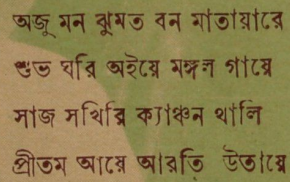 অজু মন ঝুমত বন মাতায়ারে
শুভ ঘরি অইয়ে মঙ্গল গায়ে
সাজ সখিরি ক্যাঞ্চন থালি
প্রীতম আয়ে আরতি উতায়ে